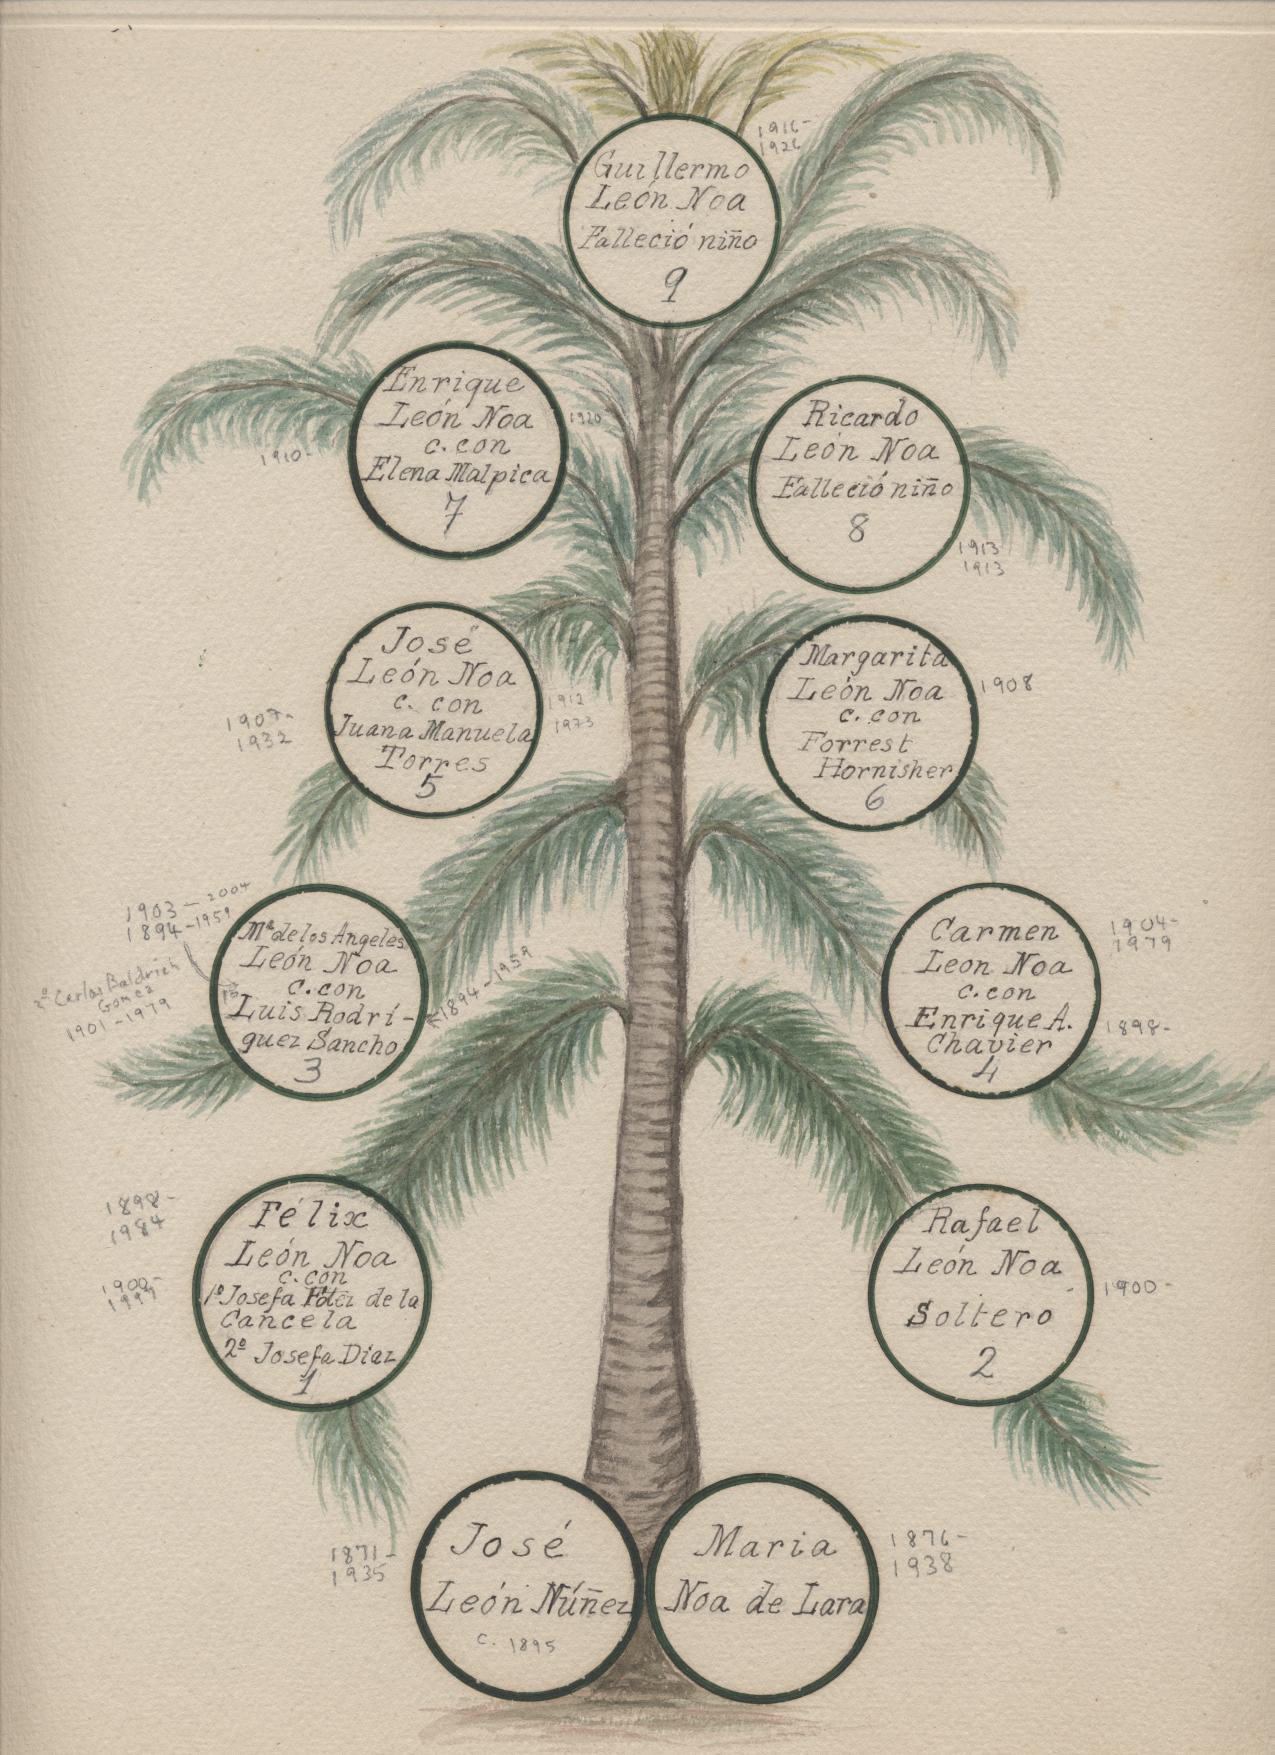 1916-
1926
Guillermo
León Noa
Falleció niño
9
Enrique
León Noa
c. con
Elena Malpica
7
1910-
1920
Ricardo
León Noa
Falleció niño
8
1913
1913
José
León Noa
c. con
Juana Manuela
Torres
5
1907-
1932
1912
1973
Margarita
León Noa
c. con
Forrest
Hornisher
6
1908
1903-2004
1894-1959
2º Carlos Baldrich
Gomez
1901-1979
Mª de los Angeles
León Noa
c. con
1º
Luis Rodrí-
guez Sancho
3
1894-1959
Carmen
Leon Noa
c. con
Enrique A.
Chavier
4
1904-
1979
1898-
1898-
1984
Félix
León Noa
c. con
1º Josefa de la
Cancela
2º Josefa Diaz
1
Rafael
León Noa
Soltero
2
1900-
José
León Núñez
c. 1895
1871-
1935
Maria
Noa de Lara
1876-
1938